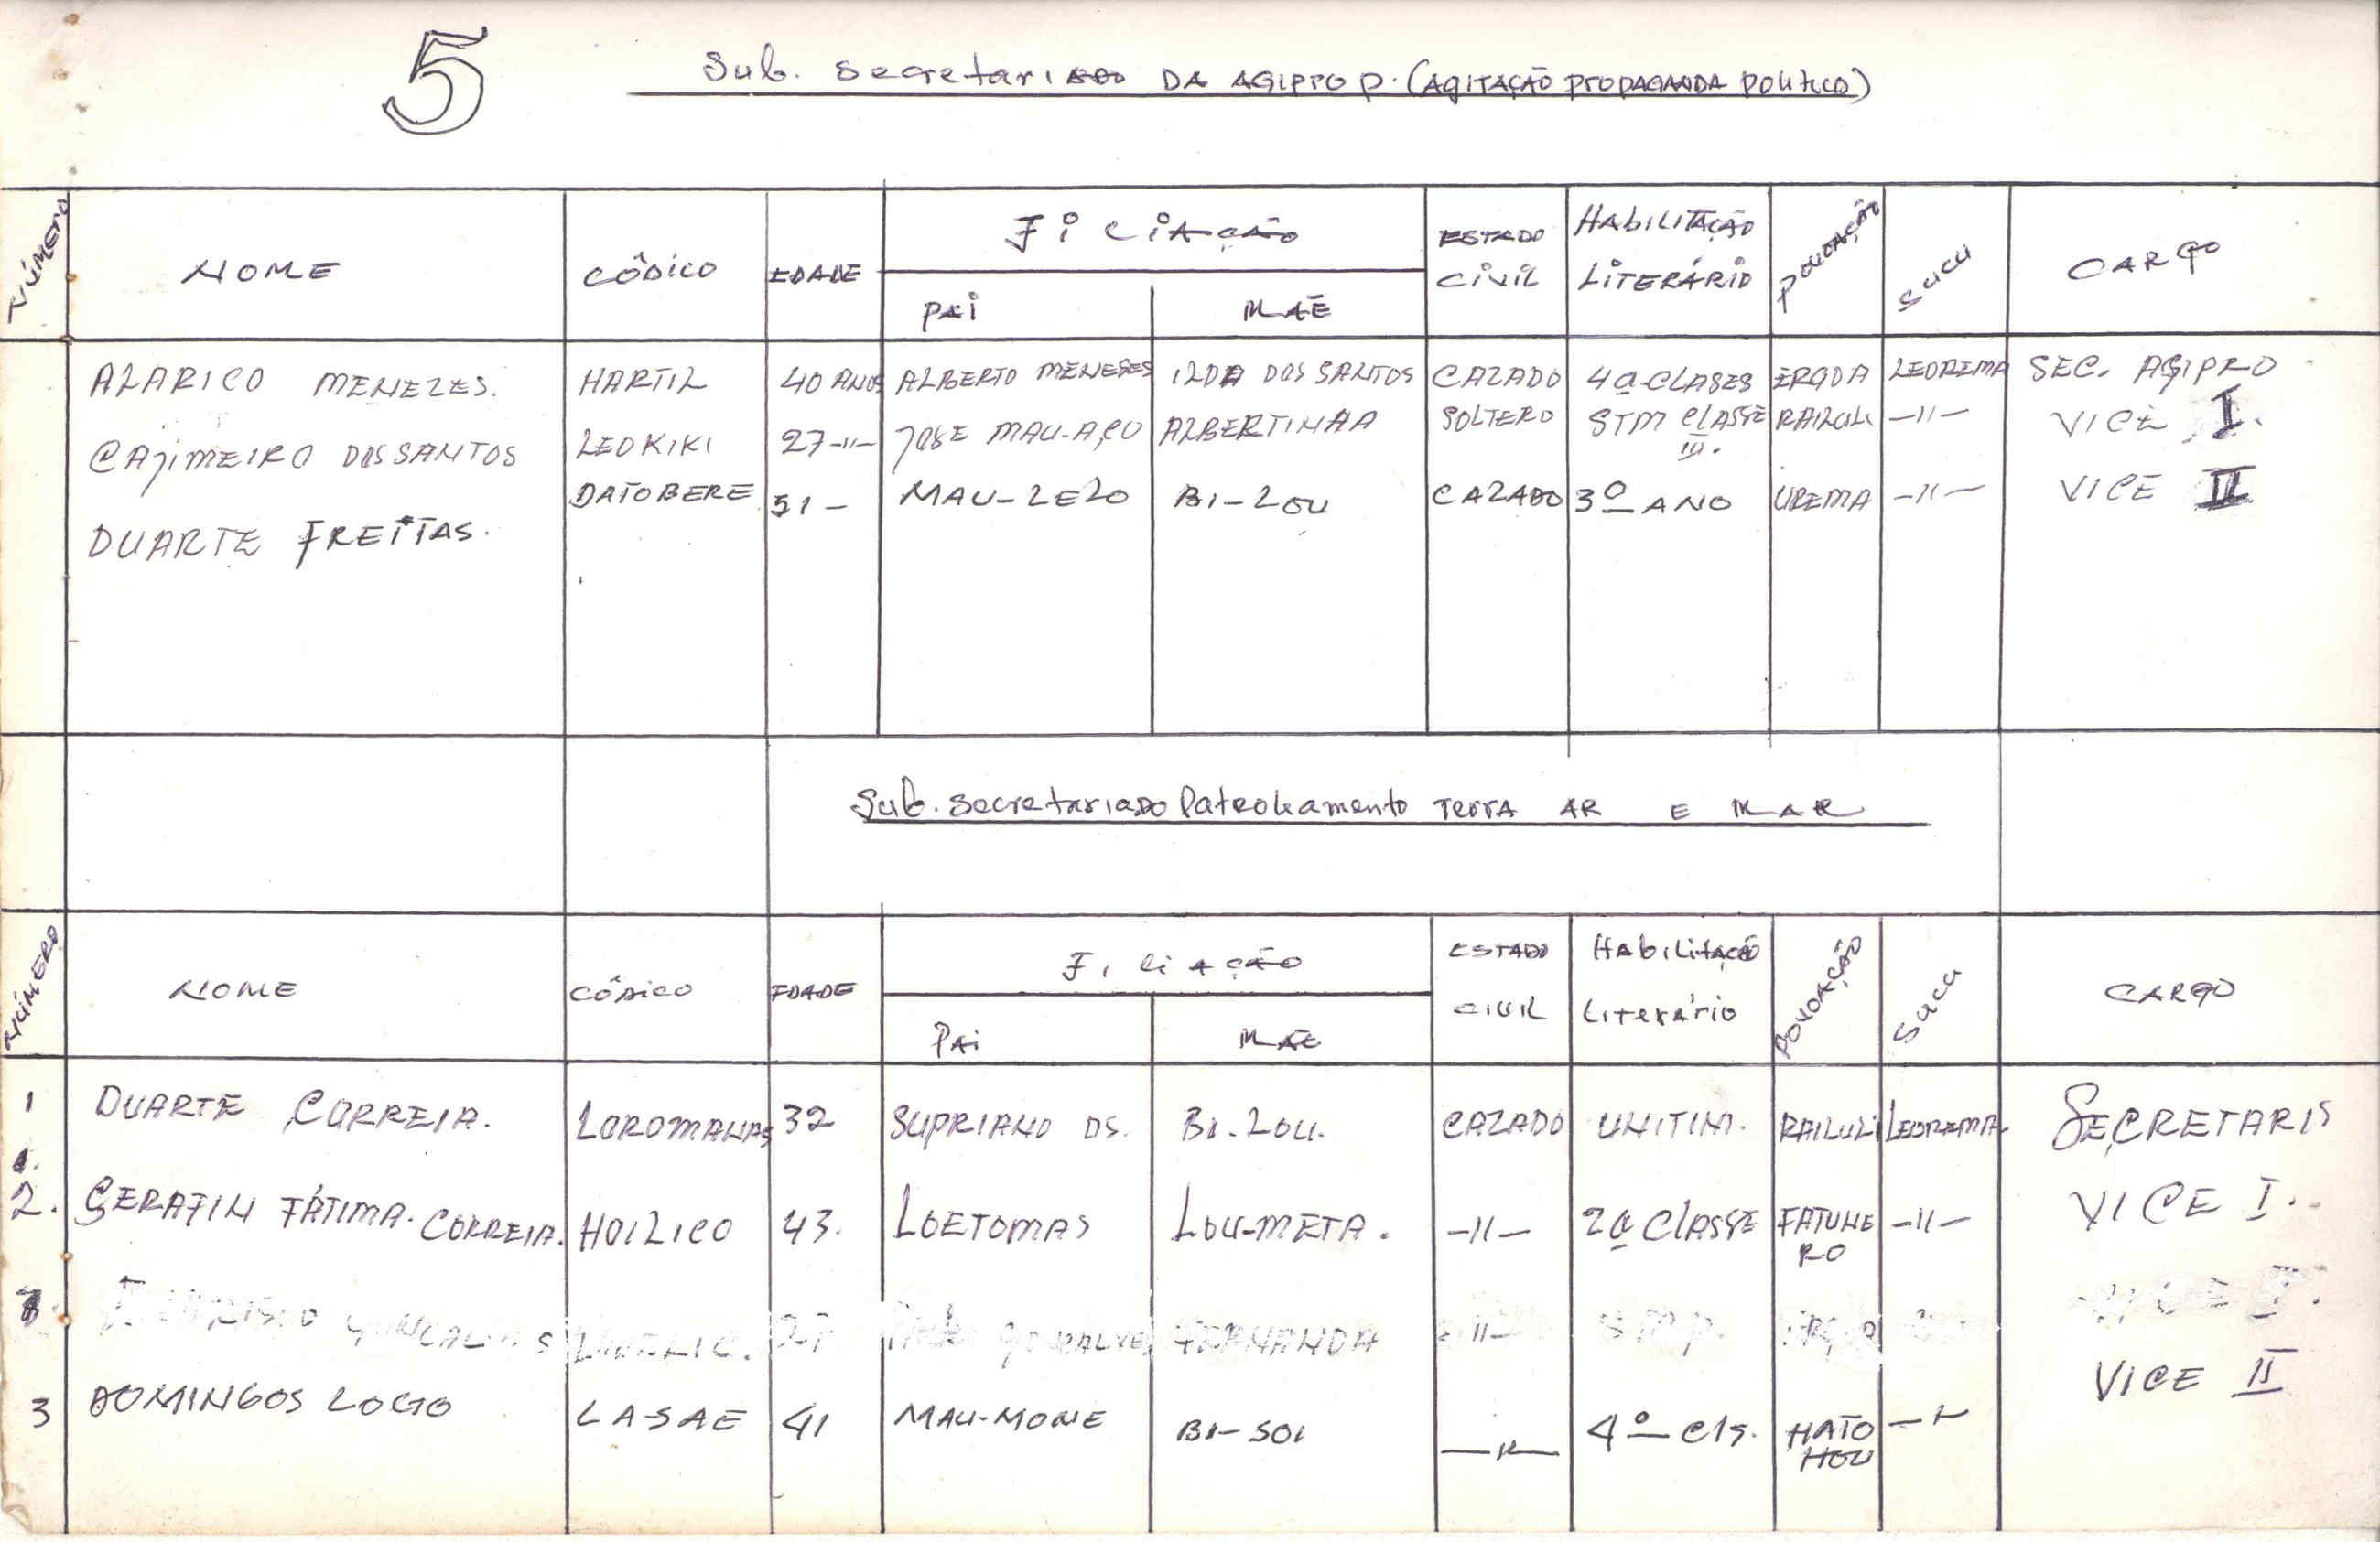 5
Sub. Secretariado DA AGIPROP. (AGITAÇÃO PROPAGANDA POLITICO)
NÚMERO NOME CÔDICO EDADE FiLIAÇÃO ESTADO CIVIL HAbiLITAÇÃO LITERÁRIO POVOAÇÃO SUCU CARGO
PAI MÃE
ALARICO MENEZES. HARTIL 40 ANOS ALBERTO MENESES ILDA DOS SANTOS CAZADO 4a CLASES ERGDA LEOREMA SEC. AGIPRO
CAJIMEIRO DOS SANTOS LEOKIKI 27 -11- JOSE MAU-AÇU ALBERTINHA SOLTERO STM CLASSE III. RAILULI -11- VICE I.
DUARTE FREITAS. DATOBERE 51 - MAU-LELO BI-LOU CAZADO 3º ANO UREMA -11- VICE II
Sub. Secretariado Patrolhamento TERRA AR E MAR
NÚMERO NOME CÔDICO EDADE FiLiAÇÃO ESTADO CIVIL HAbiLitAÇÃO Literário POVOAÇÃO SUCU CARGO
PAi MÃE
1 DUARTE CORREIA. LOROMANAS 32 SUPRIANO DS. BI-LOU. CAZADO UNITIM. RAILULI LEOREMA SECRETARIS
2. SERAFIN FÁTIMA CORREIA. HOILICO 43. LOETOMAS LOU-META. -11- 2a CLASSE FATUNERO -11- VICE I.
FERNANDA -11-
3 DOMINGOS LOGO LASAE 41 MAU-MONE BI-SOI -11- 4º cls. HATO HOU -11- VICE II